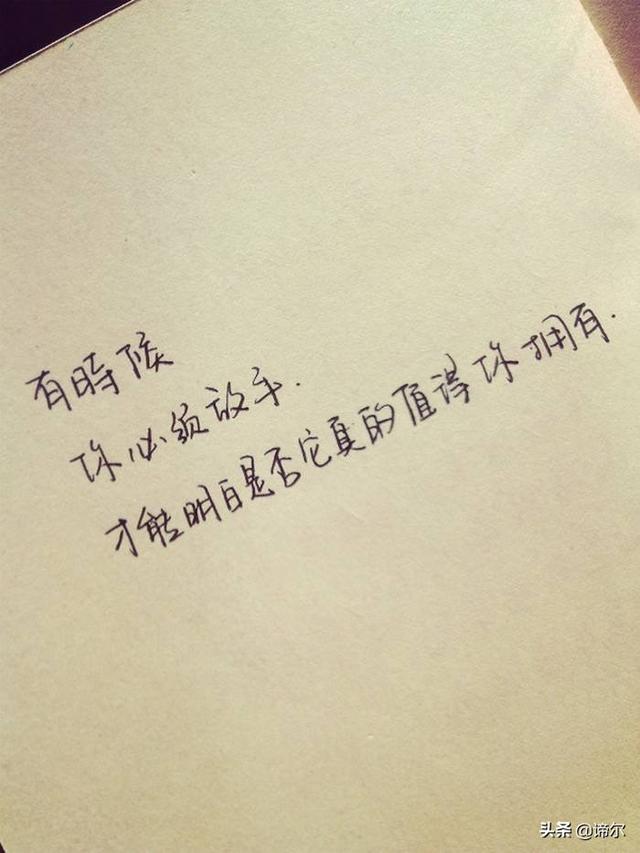 有時候
你必须放手.
才能明白是否它真的值得你拥有.
头条 @墆尔